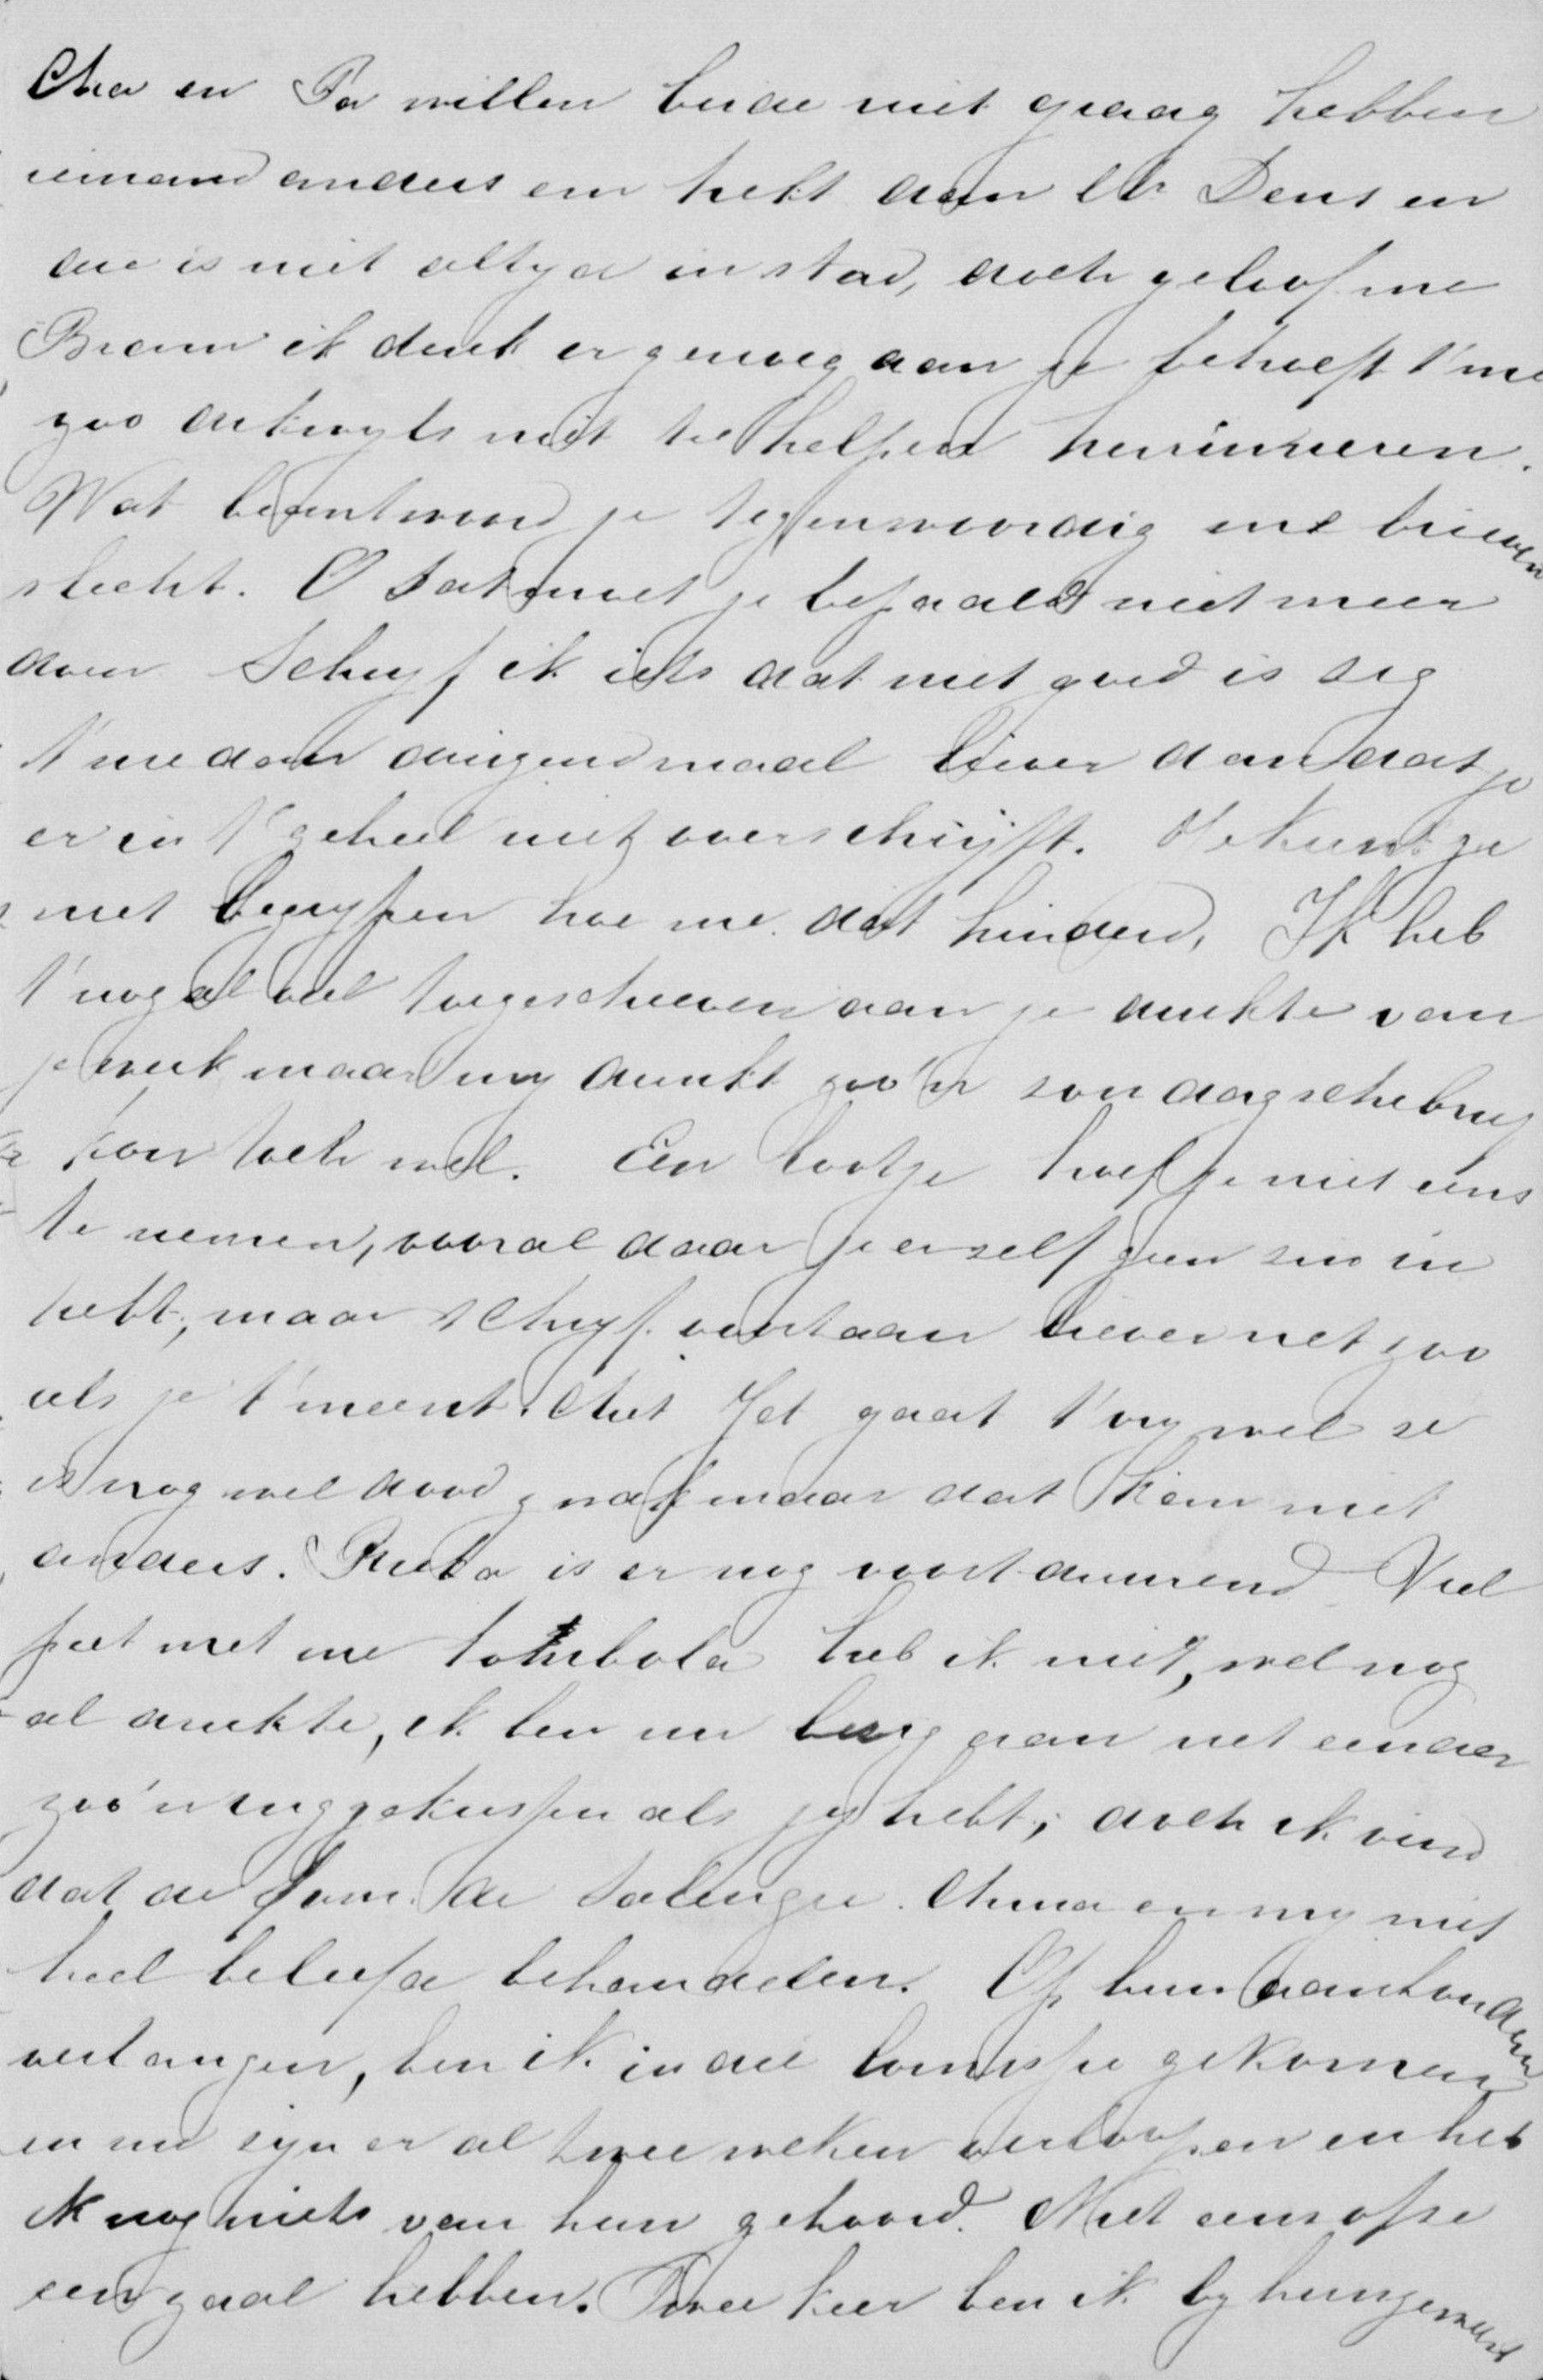 Ma en Pa willen beide niet graag hebben
iemand anders en hebt aan Mr Dent en
die is niet altyd in stad, doch geloof me
Bram ik denk er genoeg aan je behoeft t'me
zoo dikwyls niet te helpen herinneren.
Wat beantwoord je tegenwoordig me brieven
slecht. O dat moet je bepaald niet meer
doen. Schryf ik iets dat niet goed is zeg
t'me dan duizendmaal liever dan dat je
er in t'geheel niet over schrijft. Je kunt je
niet begrypen hoe me dat hinderd, Ik heb
t'nog al veel toegeschreven aan je drukte van
je werk maar my dunkt zoo'n zondagsche brief
kon toch wel. Een lootje hoef je niet eens
te nemen, vooral daar je er zelf geen zin in
hebt, maar schryf voortaan liever net zoo
als je t'meent. Met Jet gaat t'vry wel ze
is nog wel dood zwak maar dat kan niet
anders. is er nog voortdurend Veel
pret met me tombola heb ik niet, wel nog
al drukte, ik ben nu bezig aan net ander
zoo'n rugge kussen als jy hebt; doch ik vind
dat de fam. de Salengre Anna en my niet
heel beleefd behandelen. Op hun aanhoudend
verlangen, ben ik in die commissie gekomen
en nu zyn er al twee weken verloopen en heb
ik nog niets van hun gehoord. Niet eens of ze
een zaal hebben. Twee keer ben ik by hun geweest